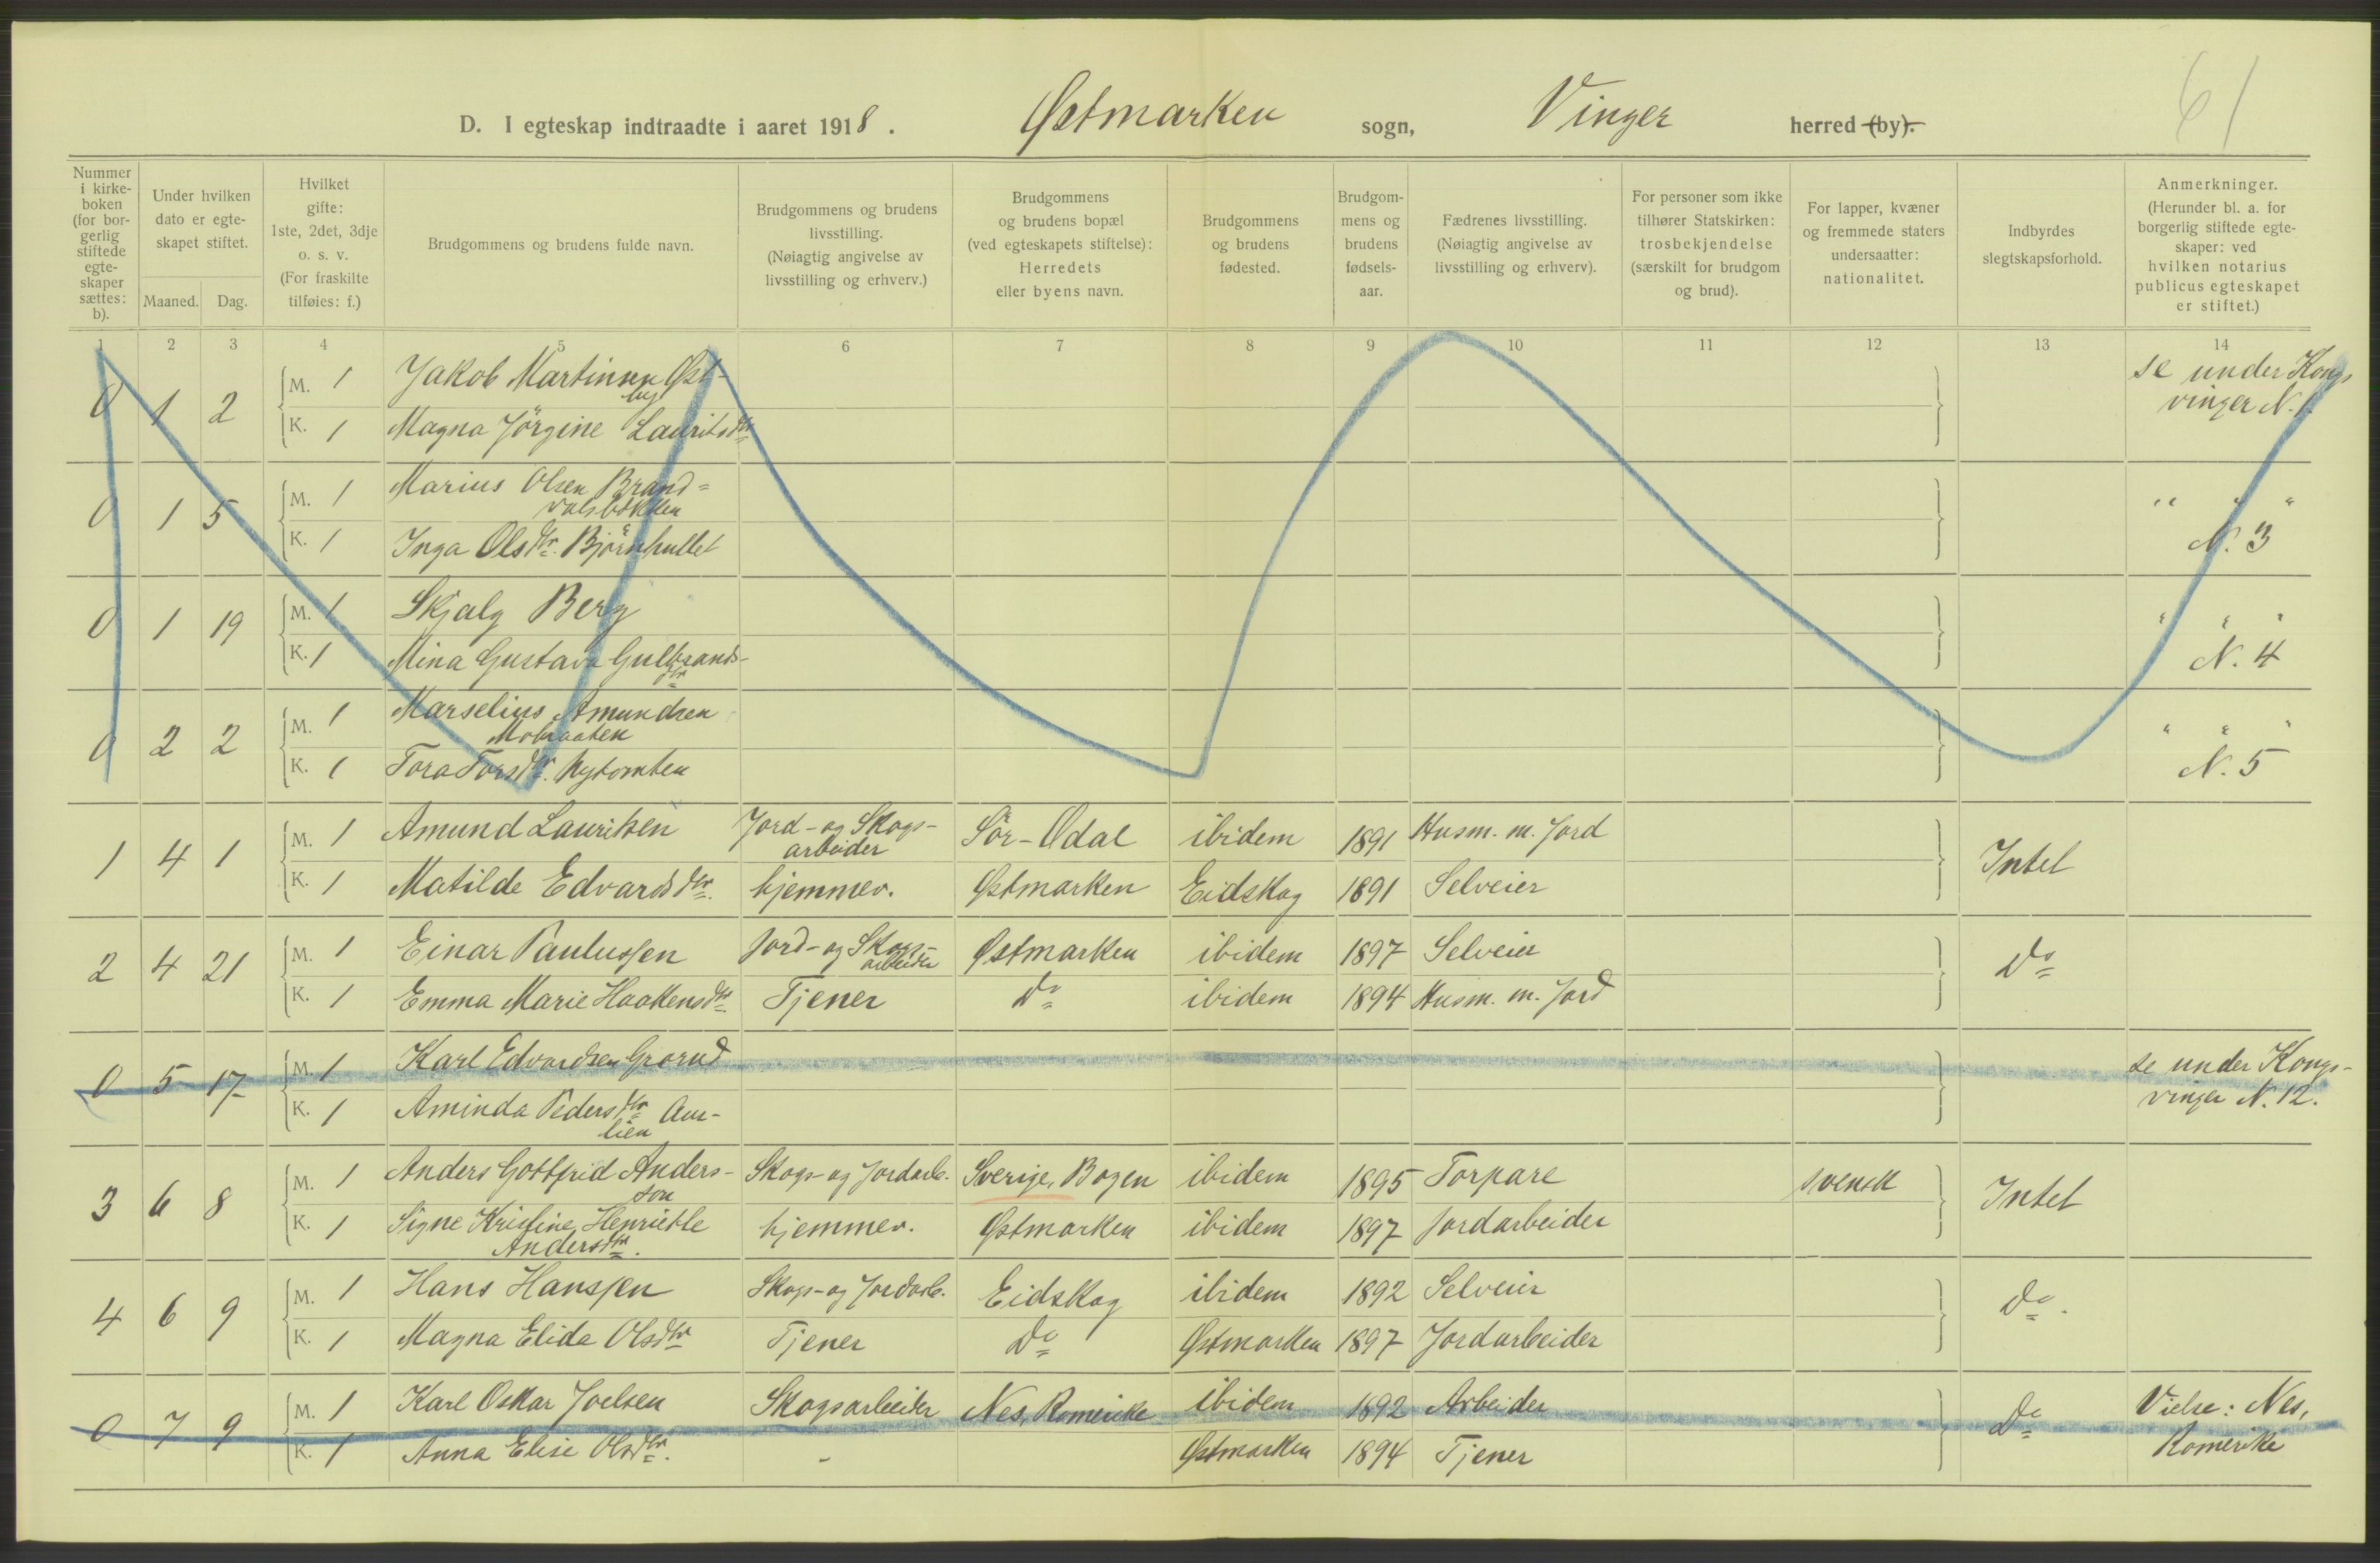 61
D. I egteskap indtraadte i aaret 1918. Østmarken sogn, Vinger herred (by).
Nummer i kirkeboken (for borgerlig stiftede egteskaper sættes: b).
Under hvilken dato er egteskapet stiftet.
Maaned. Dag.
Hvilket gifte: 1ste, 2det, 3dje o. s. v. (For fraskilte tilføies: f.)
Brudgommens og brudens fulde navn.
Brudgommens og brudens livsstilling. (Nøiagtig angivelse av livsstilling og erhverv.)
Brudgommens og brudens bopæl (ved egteskapets stiftelse): Herredets eller byens navn.
Brudgommens og brudens fødested.
Brudgommens og brudens fødselsaar.
Fædrenes livsstilling. (Nøiagtig angivelse av livsstilling og erhverv).
For personer som ikke tilhører Statskirken: trosbekjendelse (særskilt for brudgom og brud).
For lapper, kvæner og fremmede staters undersaatter: nationalitet.
Indbyrdes slegtskapsforhold.
Anmerkninger. (Herunder bl. a. for borgerlig stiftede egteskaper: ved hvilken notarius publicus egteskapet er stiftet.)
1 2 3 4 5 6 7 8 9 10 11 12 13 14
0 1 2 M. 1 Jakob Martinsen Østby se under Kongsvinger N. 1.
K. 1 Magna Jörgine Lauritsdtr
0 1 5 M. 1 Marius Olsen Brandvalsbakken " " "
K. 1 Inga Olsdtr. Björnhullet N. 3
0 1 19 M. 1 Skjalg Berg " " "
K. 1 Mina Gustava Gulbrandsdtr N. 4
0 2 2 M. 1 Marselius Amundsen " " "
K. 1 Tora Torsdtr. Nytomten N. 5
1 4 1 M. 1 Amund Lauritsen Jord- og Skogsarbeider Sör-Odal ibidem 1891 Husm. m. Jord Intet
K. 1 Matilde Edvardsdtr. hjemmev. Østmarken Eidskog 1891 Selveier
2 4 21 M. 1 Einar Paulussen Jord- og Skogsarbeider Østmarken ibidem 1897 Selveier Do
K. 1 Emma Marie Haakensdtr. Tjener Do ibidem 1894 Husm. m. Jord
0 5 17 M. 1 Karl Edvardsen Grorud se under Kongsvinger N. 12.
K. 1 Aminda Pedersdtr Aurlien
3 6 8 M. 1 Anders Gottfrid Andersson Skogs- og Jordarb. Sverige, Bogen ibidem 1895 Torpare svensk Intet
K. 1 Signe Kristine Henriette Andersdtr. hjemmev. Østmarken ibidem 1897 Jordarbeider
4 6 9 M. 1 Hans Hanssen Skogs- og Jordarb. Eidskog ibidem 1892 Selveier Do.
K. 1 Magna Elida Olsdtr Tjener Do Østmarken 1897 Jordarbeider
0 7 9 M. 1 Karl Oskar Joelsen Skogsarbeider Nes, Romerike ibidem 1892 Arbeider Do Vielse: Nes, Romerike
K. 1 Anna Elise Olsdtr. - Østmarken 1894 Tjener